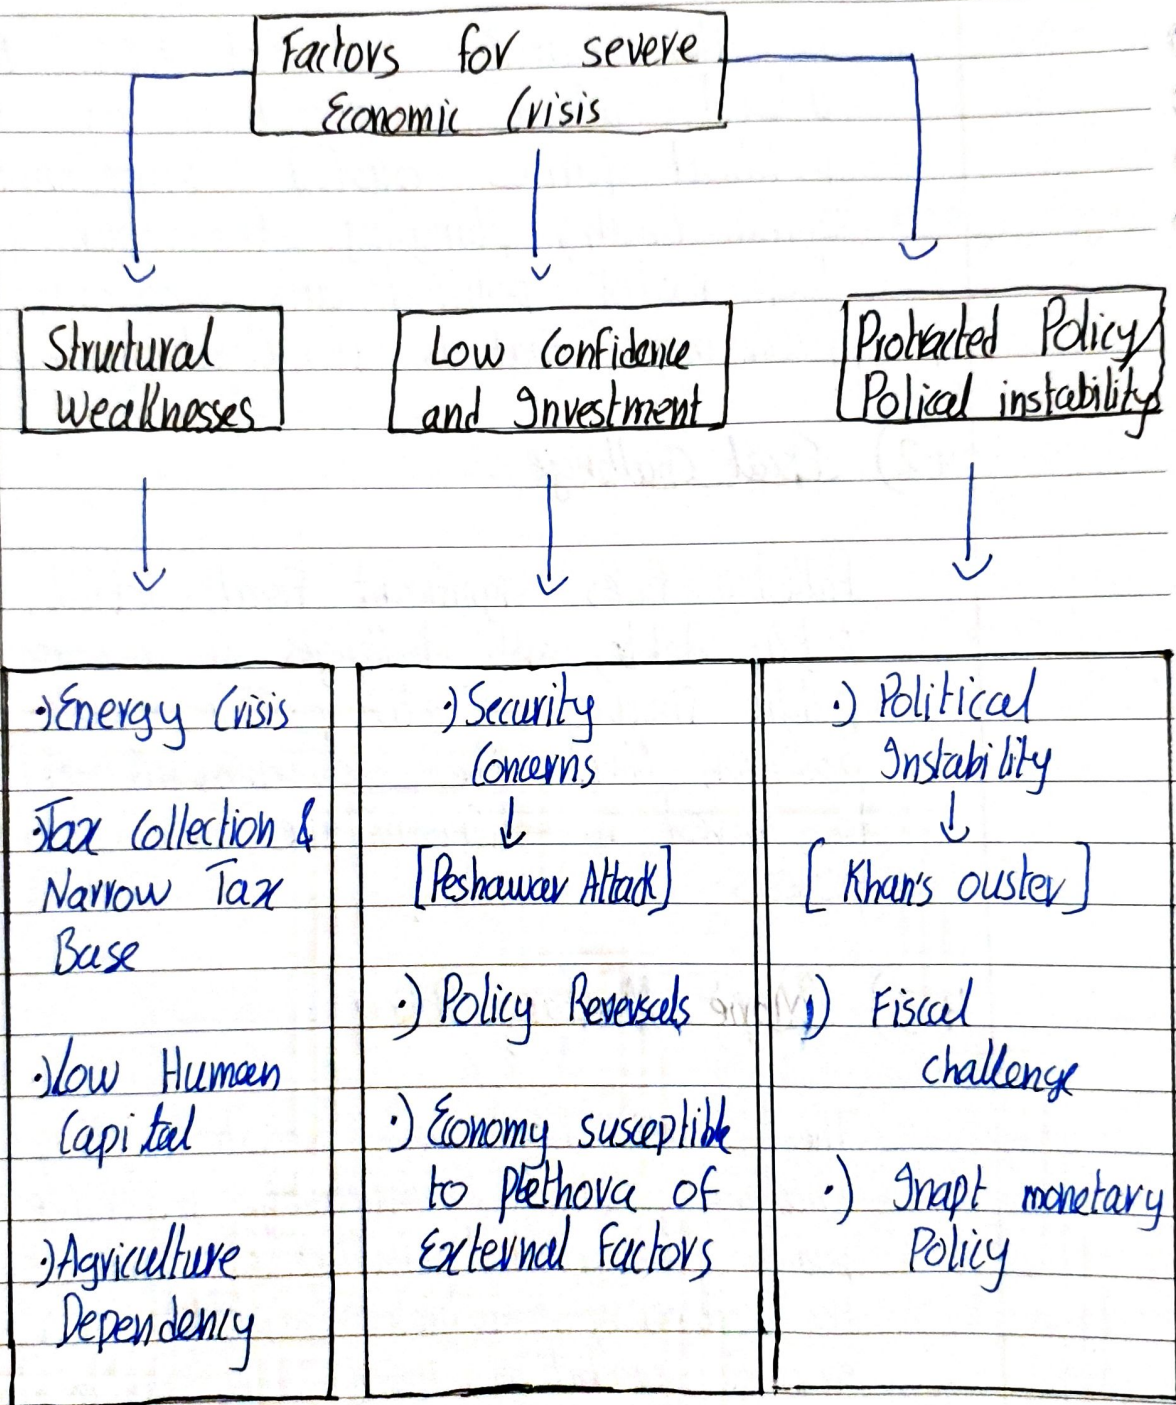 Factors for severe
Economic Crisis
Structural
Weaknesses
Low Confidence
and Investment
Protracted Policy/
Polical instability
.) Energy Crisis
.) Tax Collection &
Narrow Tax
Base
.) Low Human
Capital
.) Agriculture
Dependency
.) Security
Concerns
[Peshawar Attack]
.) Policy Reversals
.) Economy susceptible
to plethora of
External Factors
.) Political
Instability
[Khan's ouster]
.) Fiscal
challenge
.) Inapt monetary
Policy